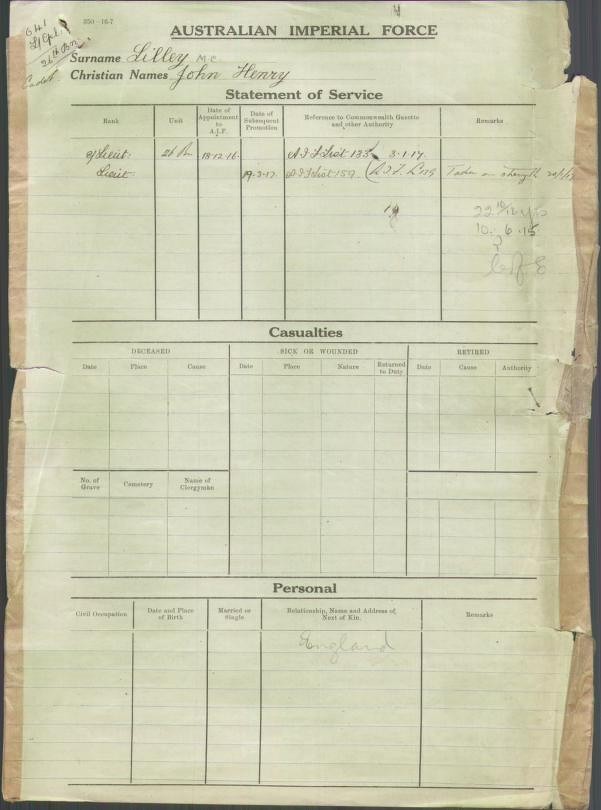 4
350—16-7
641
L/Cpl.
26th Bn.
Cadet.
AUSTRALIAN IMPERIAL FORCE
Surname Lilley M.C.
Christian Names John Henry
Statement of Service
Rank Unit Date of Appointment to A.I.F. Date of Subsequent Promotion Reference to Commonwealth Gazette and other Authority Remarks
2/Lieut. 26 Bn 18.12.16. A.I.F List 135 3.1.17.
Lieut. 19.3.17 A.I.F List 159 Taken on strength
22 10/12 yrs
10. 6. 15
?
C of E
Casualties
DECEASED SICK OR WOUNDED RETIRED
Date Place Cause Date Place Nature Returned to Duty Date Cause Authority
No. of Grave Cemetery Name of Clergyman
Personal
Civil Occupation Date and Place of Birth Married or Single Relationship, Name and Address of Next of Kin. Remarks
England